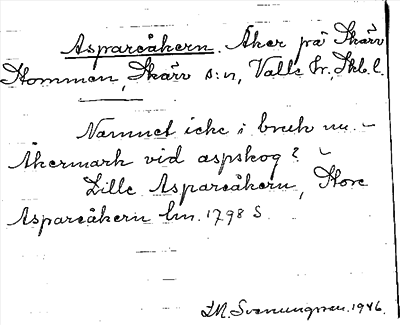 Aspareåkern. Åker på Skärv
Stommen, Skärv s:n, Valle hr, Skb. l.
Namnet icke i bruk nu. –
Åkermark vid aspskog?
Lille Aspareåkern, Store
Aspareåkern lm. 1798 S.
Svenungsson. 1946.